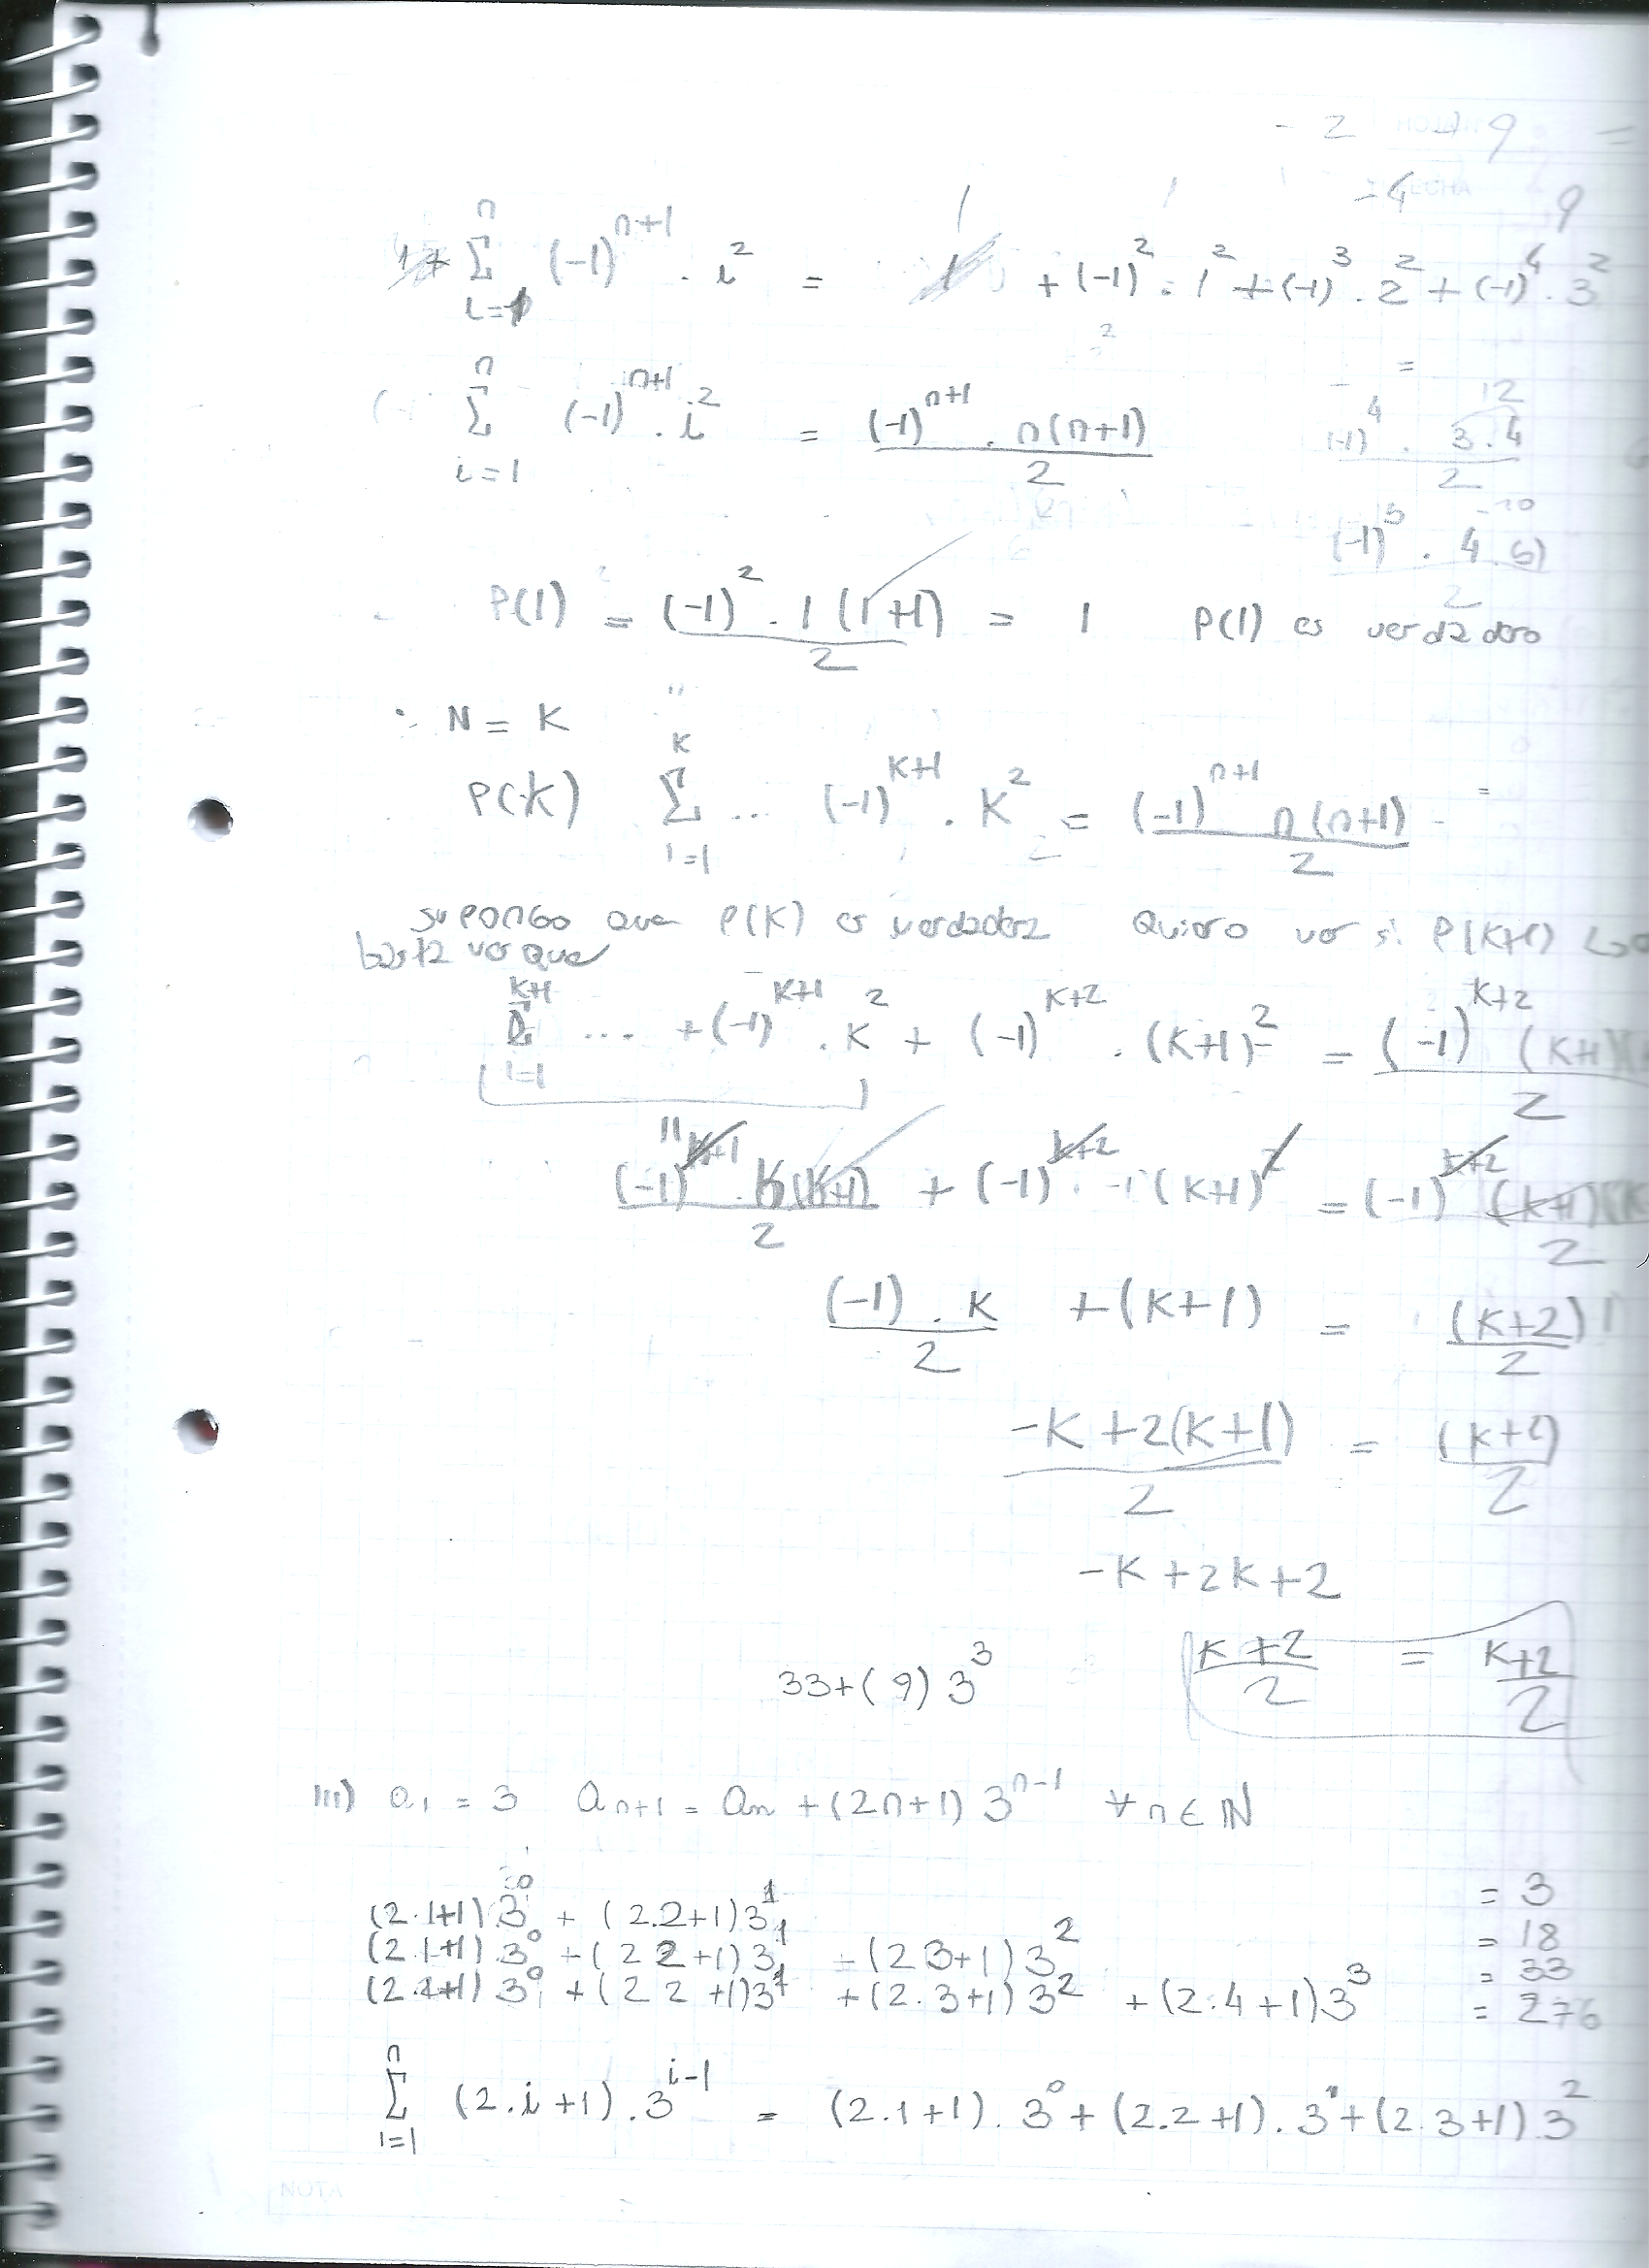 - 2 + 9 =
-4 9
n
Σ (-1)^{n+1} . i^2 = + (-1)^2 . 1^2 + (-1)^3 . 2^2 + (-1)^4 . 3^2
i=1
n
Σ (-1)^{n+1} . i^2 = (-1)^{n+1} . n(n+1) / 2
i=1
=
(-1)^4 . 3.4 / 2 12
(-1)^5 . 4.5) / 2 -10
P(1) = (-1)^2 . 1 (1+1) / 2 = 1 P(1) es verdadero
N = K
P(K) Σ_{i=1}^{K} ... (-1)^{K+1} . K^2 = (-1)^{n+1} n(n+1) / 2 =
supongo que P(K) es verdadera Quiero ver si P(K+1)
basta ver que
Σ_{i=1}^{K+1} .... + (-1)^{K+1} . K^2 + (-1)^{K+2} . (K+1)^2 = (-1)^{K+2} (K+1)( / 2
"
(-1)^{K+1} . K(K+1) / 2 + (-1)^{K+2} . (K+1)^2 = (-1)^{K+2} (K+1)(K / 2
(-1) . K / 2 + (K+1) = (K+2) / 2
-K + 2(K+1) / 2 = (K+2) / 2
-K + 2K + 2
K+2 / 2 = K+2 / 2
33 + (9) 3^3
III) a_1 = 3 a_{n+1} = a_n + (2n+1) 3^{n-1} ∀ n ∈ ℕ
= 3
(2.1+1) 3^0 + (2.2+1) 3^1 = 18
(2.1+1) 3^0 + (2 2+1) 3^1 + (2 3+1) 3^2 = 33
(2.1+1) 3^0 + (2 2 +1) 3^1 + (2.3+1) 3^2 + (2.4+1) 3^3 = 276
n
Σ (2.i+1) . 3^{i-1} = (2.1+1) . 3^0 + (2.2+1) . 3^1 + (2.3+1) 3^2
i=1
NOTA